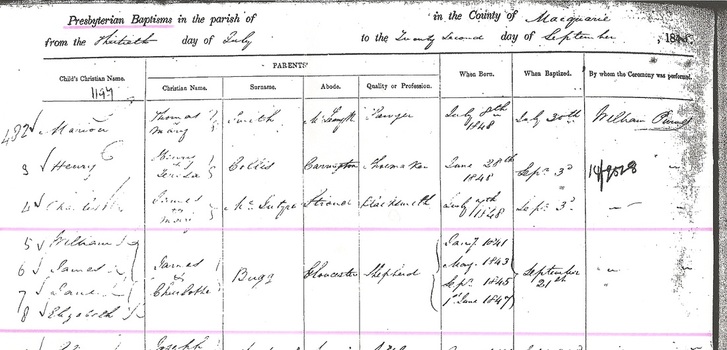 Presbyterian Baptisms in the parish of in the County of Macquarie
from the Thirtieth day of July to the Twenty second day of September, 184
PARENTS'
Child's Christian Name. Christian Name. Surname. Abode. Quality or Profession. When Born. When Baptized. By whom the Ceremony was performed.
1197
482 Marion Thomas Mary Smith Sawyer July 8th 1848 July 30th William
3 Henry Henry Collis Carrington Shoemaker June 28th 1848 Sepr 3d
4 Charles James McIntyre Stroud Blacksmith July 1848 Sepr 3d
5 William
6 James
7 Jane
8 Elizabeth
James & Charlotte Bugg Gloucester Shepherd
Jany 1841
May 1843
Sepr 1845
1st June 1847
September 21st
Joseph